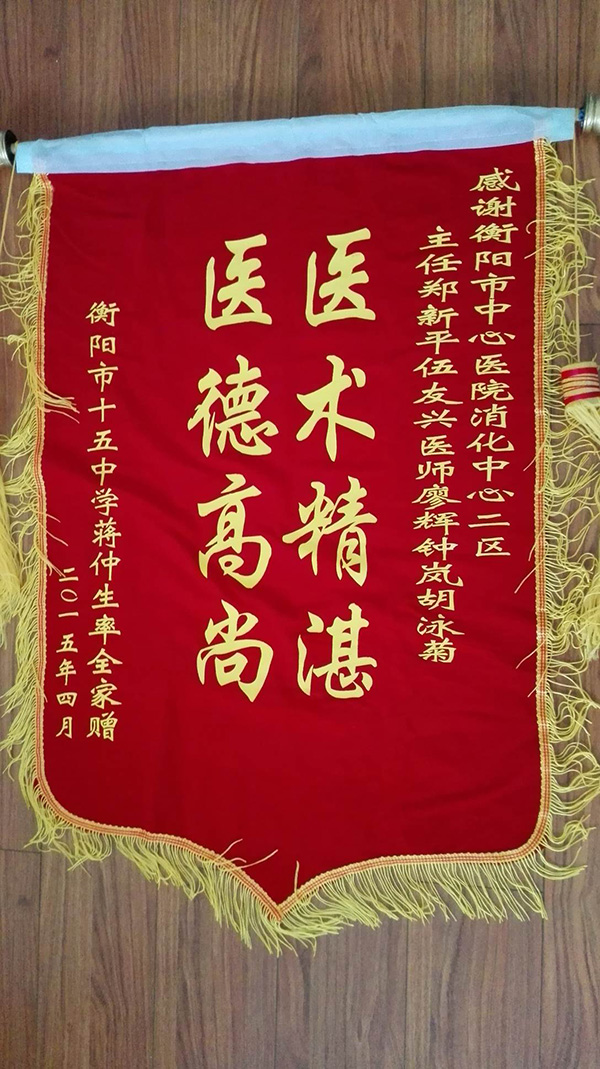 感谢衡阳市中心医院消化中心二区
主任郑新平伍友兴医师廖辉钟岚胡泳菊
医术精湛
医德高尚
衡阳市十五中学蒋仲生率全家赠
二〇一五年四月